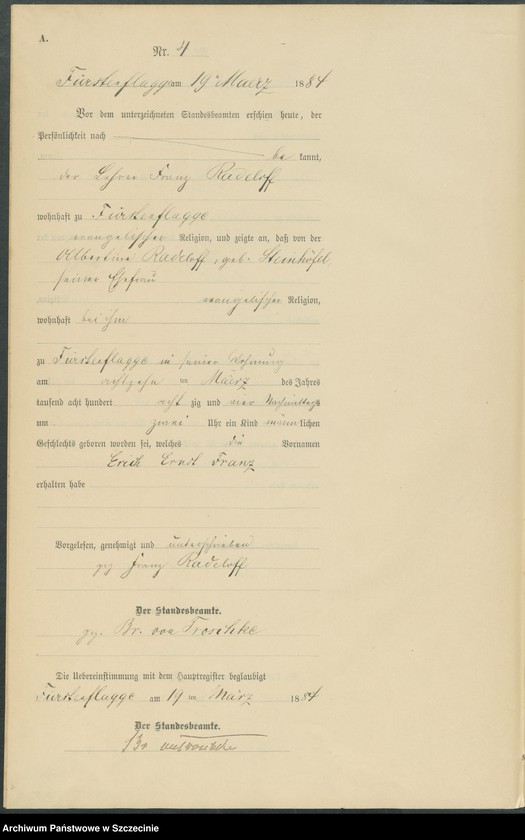 A.
Nr. 4
Fürstenflagge am 19 ten Maerz 1884
Vor dem unterzeichneten Standesbeamten erschien heute, der
Persönlichkeit nach
be kannt,
der Lehrer Franz Radeloff
wohnhaft zu Fürstenflagge
evangelischer Religion, und zeigte an, daß von der
Albertine Radeloff, geb. Steinhöfel
seiner Ehefrau
evangelischer Religion,
wohnhaft bei ihm
zu Fürstenflagge in seiner Wohnung
am achtzehn ten März des Jahres
tausend acht hundert acht zig und vier Nachmittags
um zwei Uhr ein Kind männlichen
Geschlechts geboren worden sei, welches die Vornamen
Erich Ernst Franz
erhalten habe
Vorgelesen, genehmigt und unterschrieben
gez. Franz Radeloff
Der Standesbeamte.
gez. Br. von Troschke
Die Uebereinstimmung mit dem Hauptregister beglaubigt
Fürstenflagge am 19 ten März 1884
Der Standesbeamte.
Br von Troschke
Archiwum Państwowe w Szczecinie